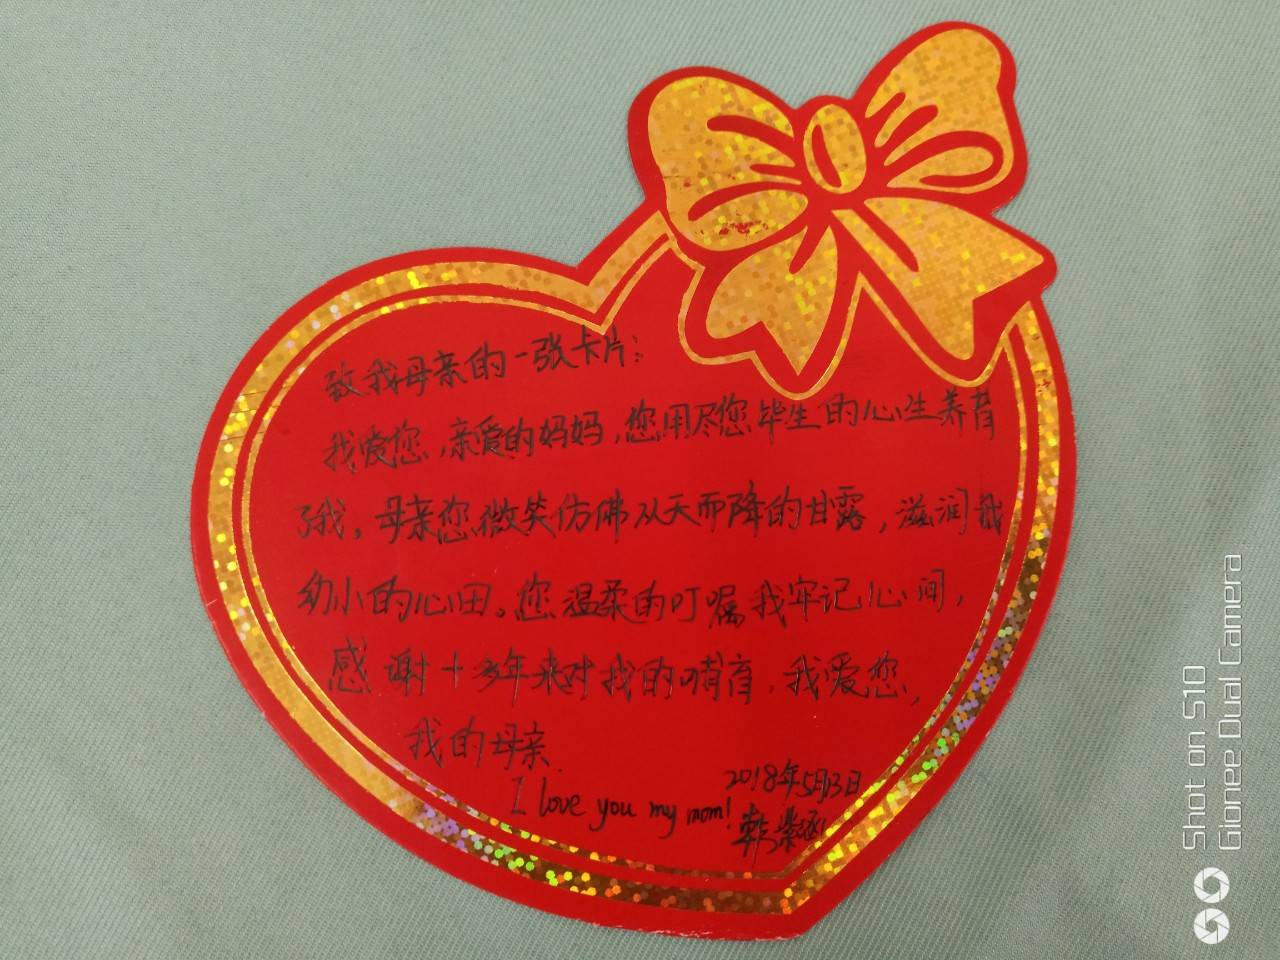 致我母亲的一张卡片：
我爱您，亲爱的妈妈，您用尽您毕生的心生养育
了我。母亲您微笑仿佛从天而降的甘露，滋润我
幼小的心田。您温柔的叮嘱我牢记心间，
感谢十多年来对我的哺育，我爱您，
我的母亲.
I love you my mom!
2018年5月13日
韩紫涵
Shot on S10
Gionee Dual Camera